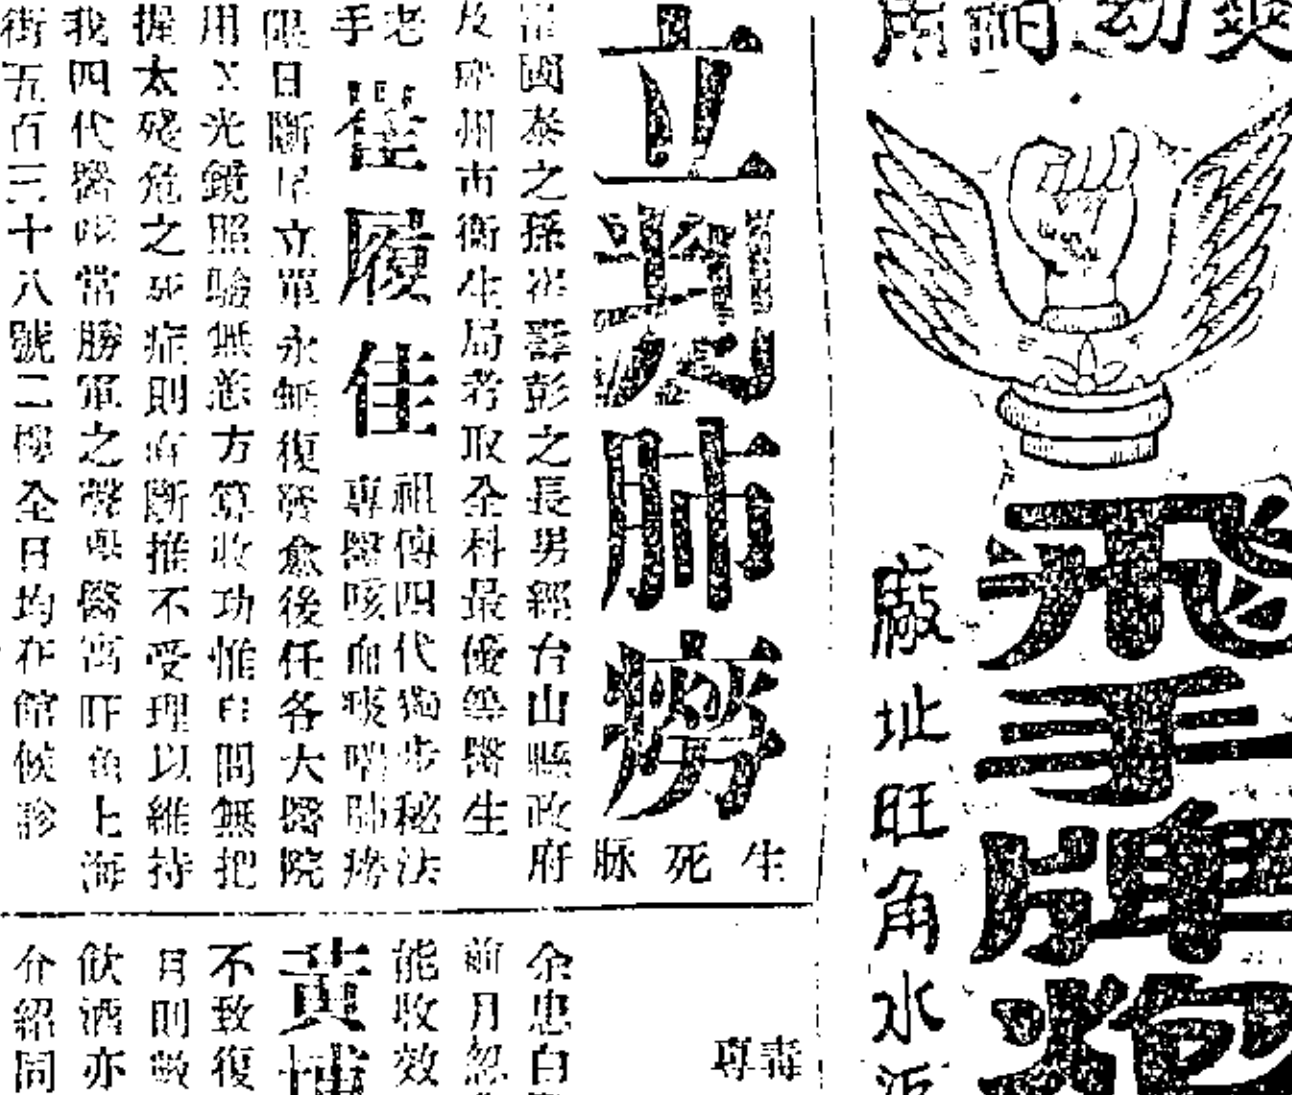 飛手牌
廠址旺角水
立判肺癆
生死脉
崔國泰之孫崔壽彭之長男經台山縣政府
及廣州市衛生局考取全科最優等醫生
老手
崔履佳
祖傳四代獨步秘法
專醫咳血痰喘肺癆
限日斷尾立單永無復發愈後任各大醫院
用X光鏡照驗無恙方算收功惟自問無把
握太殘危之死症則直斷推不受理以維持
我四代醫咳常勝軍之聲譽醫寓旺角上海
街五百三十八號二樓全日均在館候診
毒專
余患白
前月忽
能收效
黃
不致復
月則數
飲酒亦
介紹同